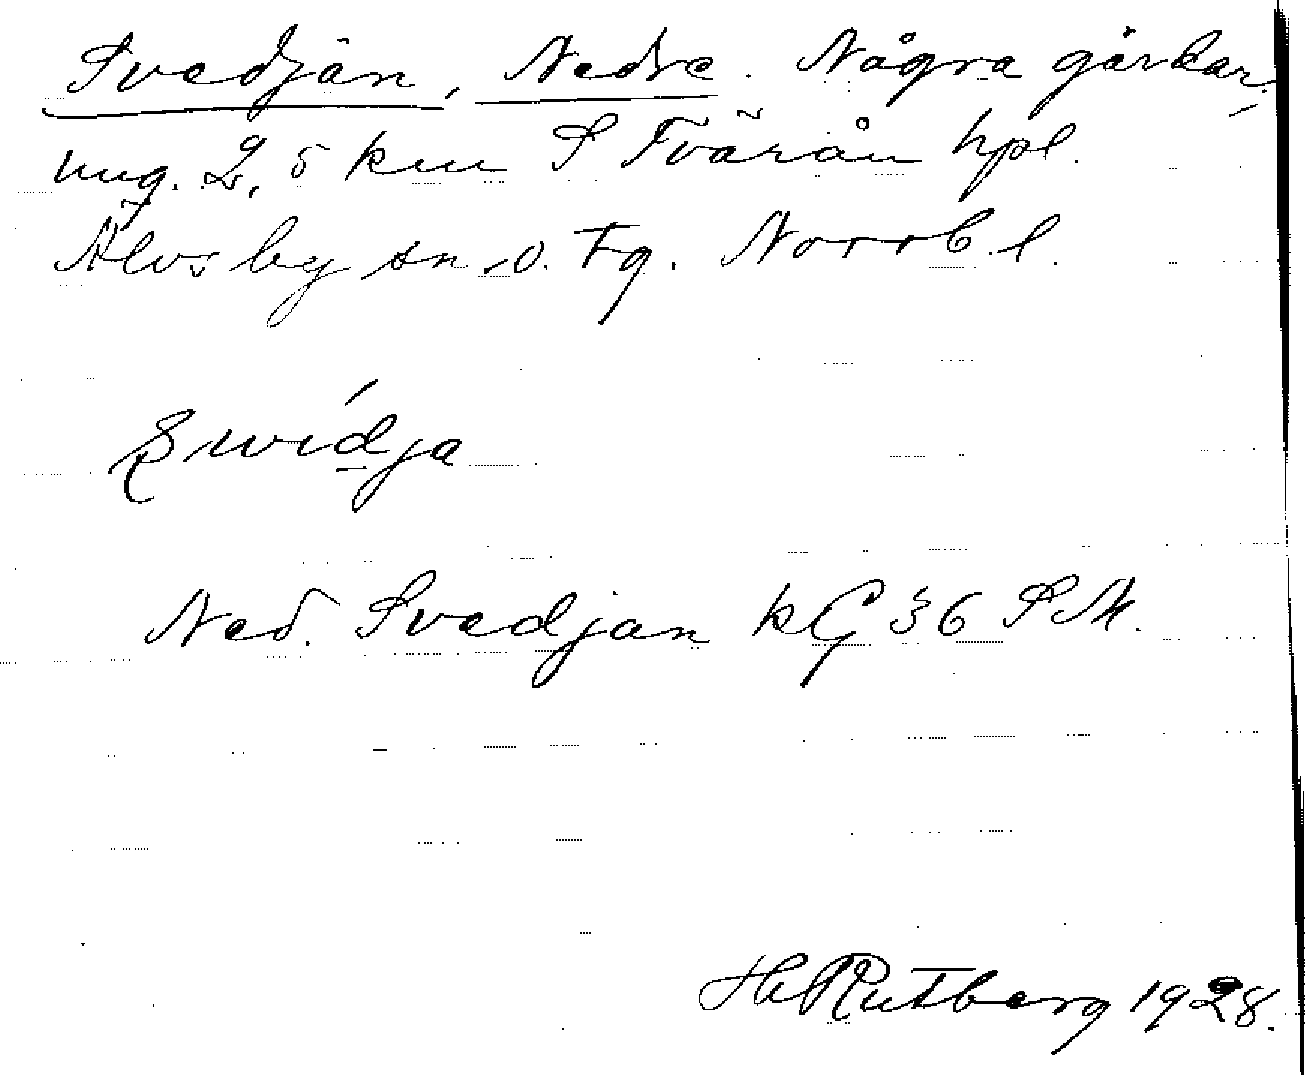 Svedjan, Nedre. Några gårdar,
ung. 2,5 km S Tvärån hpl.
Älvsby sn o. tg. Norrb. l.
swídja
Ned. Svedjan kG 36 SM.
H. Rutberg 1928.